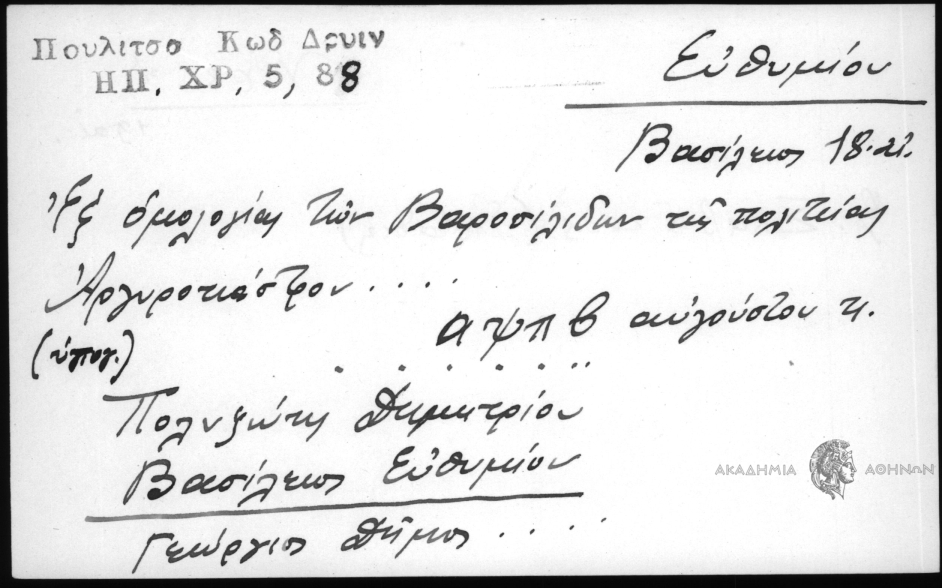 Πουλιτσο Κωδ Δρυιν
ΗΠ. ΧΡ, 5, 88
Εὐθυμίου
Βασίλειος 18 αἰ.
Ἐξ ὁμολογίας τῶν Βαροσιλιδων τῆς πολιτείας
Ἀργυροκάστρου . . . .
αψπβ αὐγούστου κ.
(ὑπογ.) . . . . . . .
Πολυζώης Δημητρίου
Βασίλειος Εὐθυμίου
Γεώργιος Δῆμος . . . .
ΑΚΑΔΗΜΙΑ ΑΘΗΝΩΝ